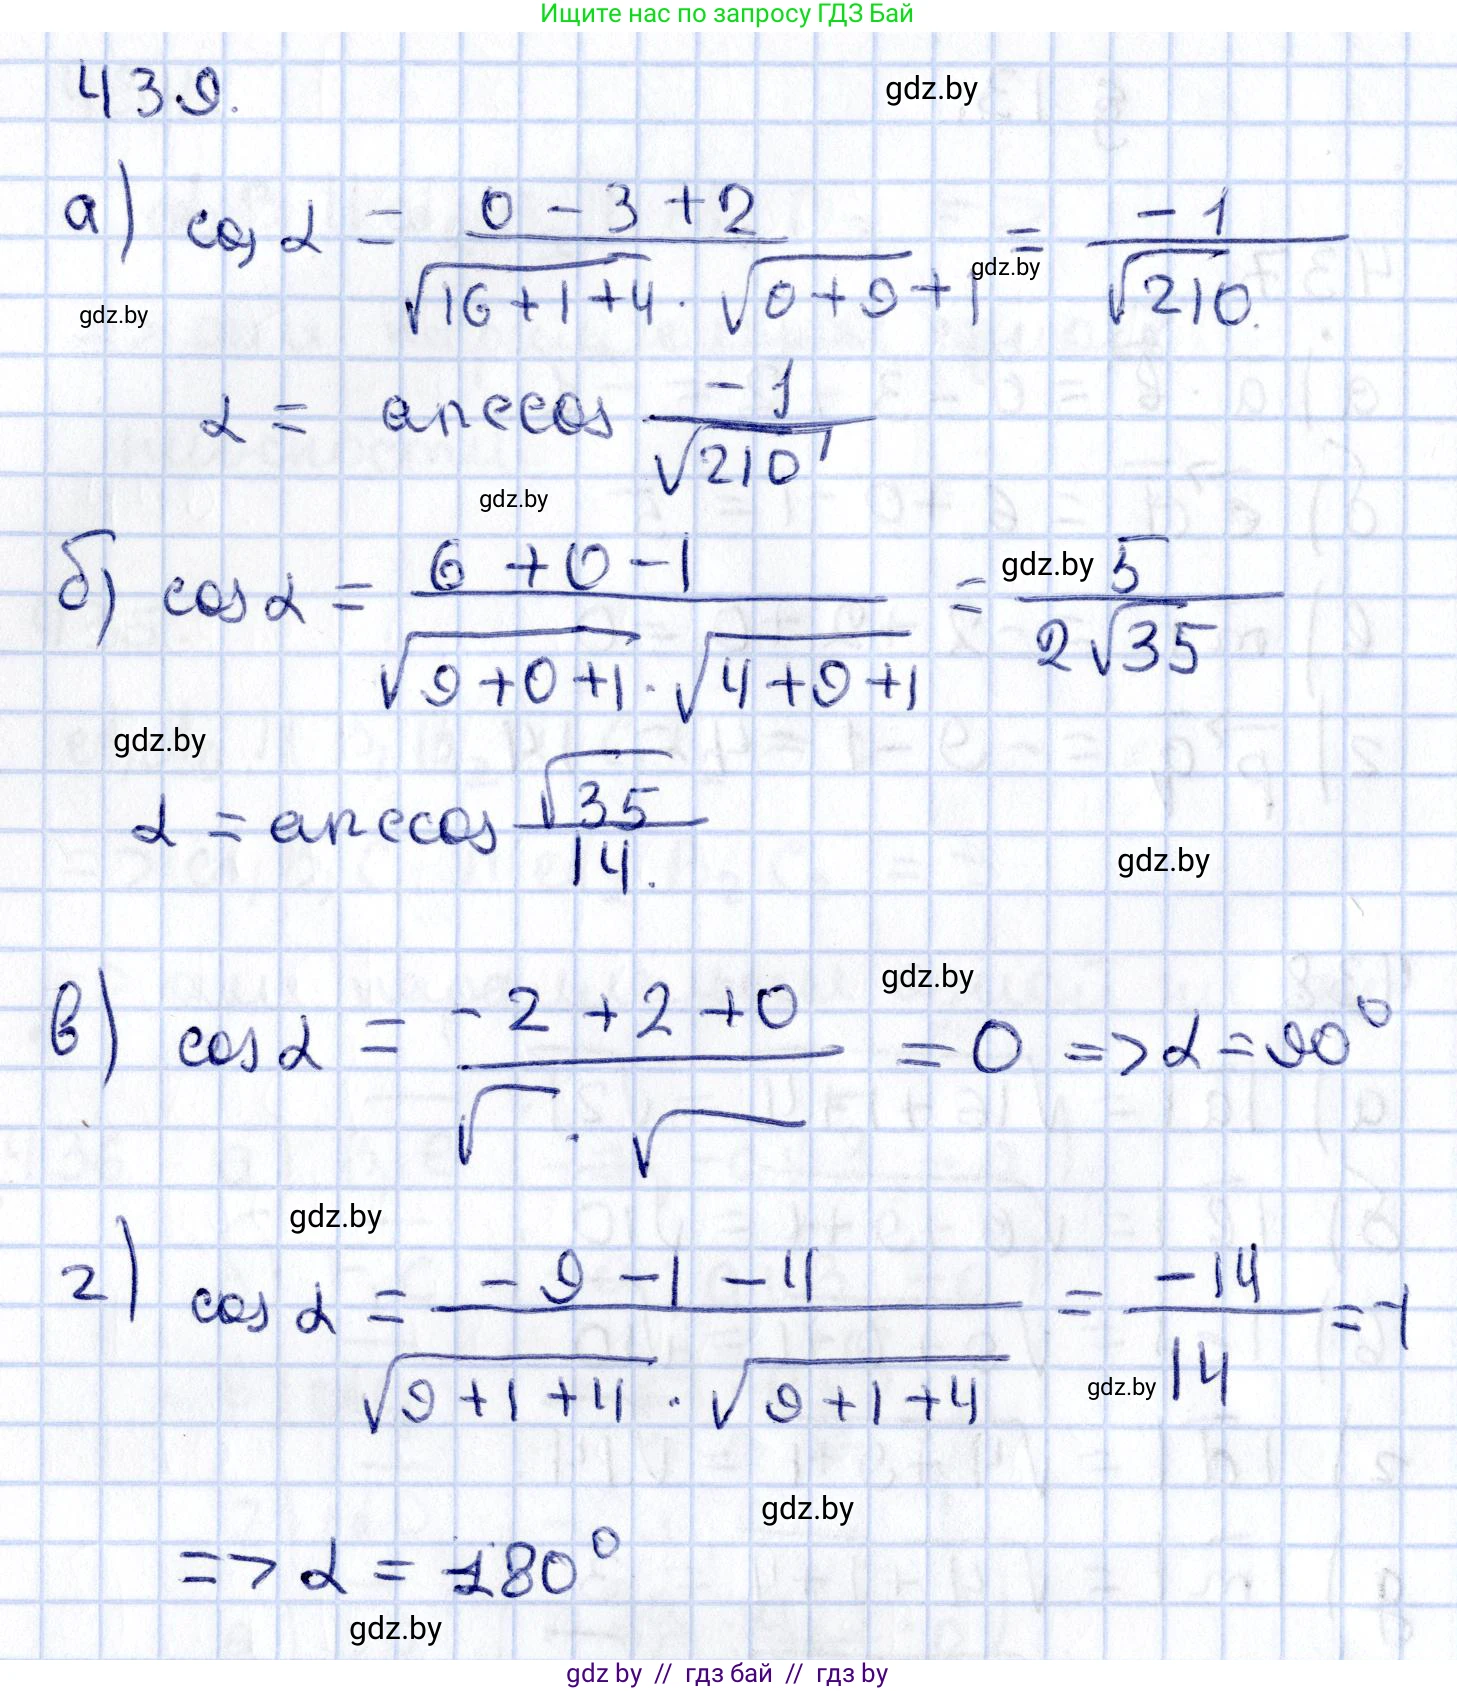 Ищите нас по запросу ГДЗ Бай
439.
gdz.by
а) cos α = (0 - 3 + 2)/(√(16+1+4) · √(0+9+1)) = -1/√210.
gdz.by
gdz.by
α = arccos -1/√210
gdz.by
б) cos α = (6 + 0 - 1)/(√(9+0+1) · √(4+9+1)) = 5/(2√35)
gdz.by
gdz.by
α = arccos √35/14.
gdz.by
gdz.by
в) cos α = (-2 + 2 + 0)/(√ · √) = 0 => α = 90⁰
gdz.by
г) cos α = (-9 - 1 - 4)/(√(9+1+4) · √(9+1+4)) = -14/14 = -1
gdz.by
gdz.by
=> α = 180⁰
gdz.by
gdz.by // гдз бай // гдз by